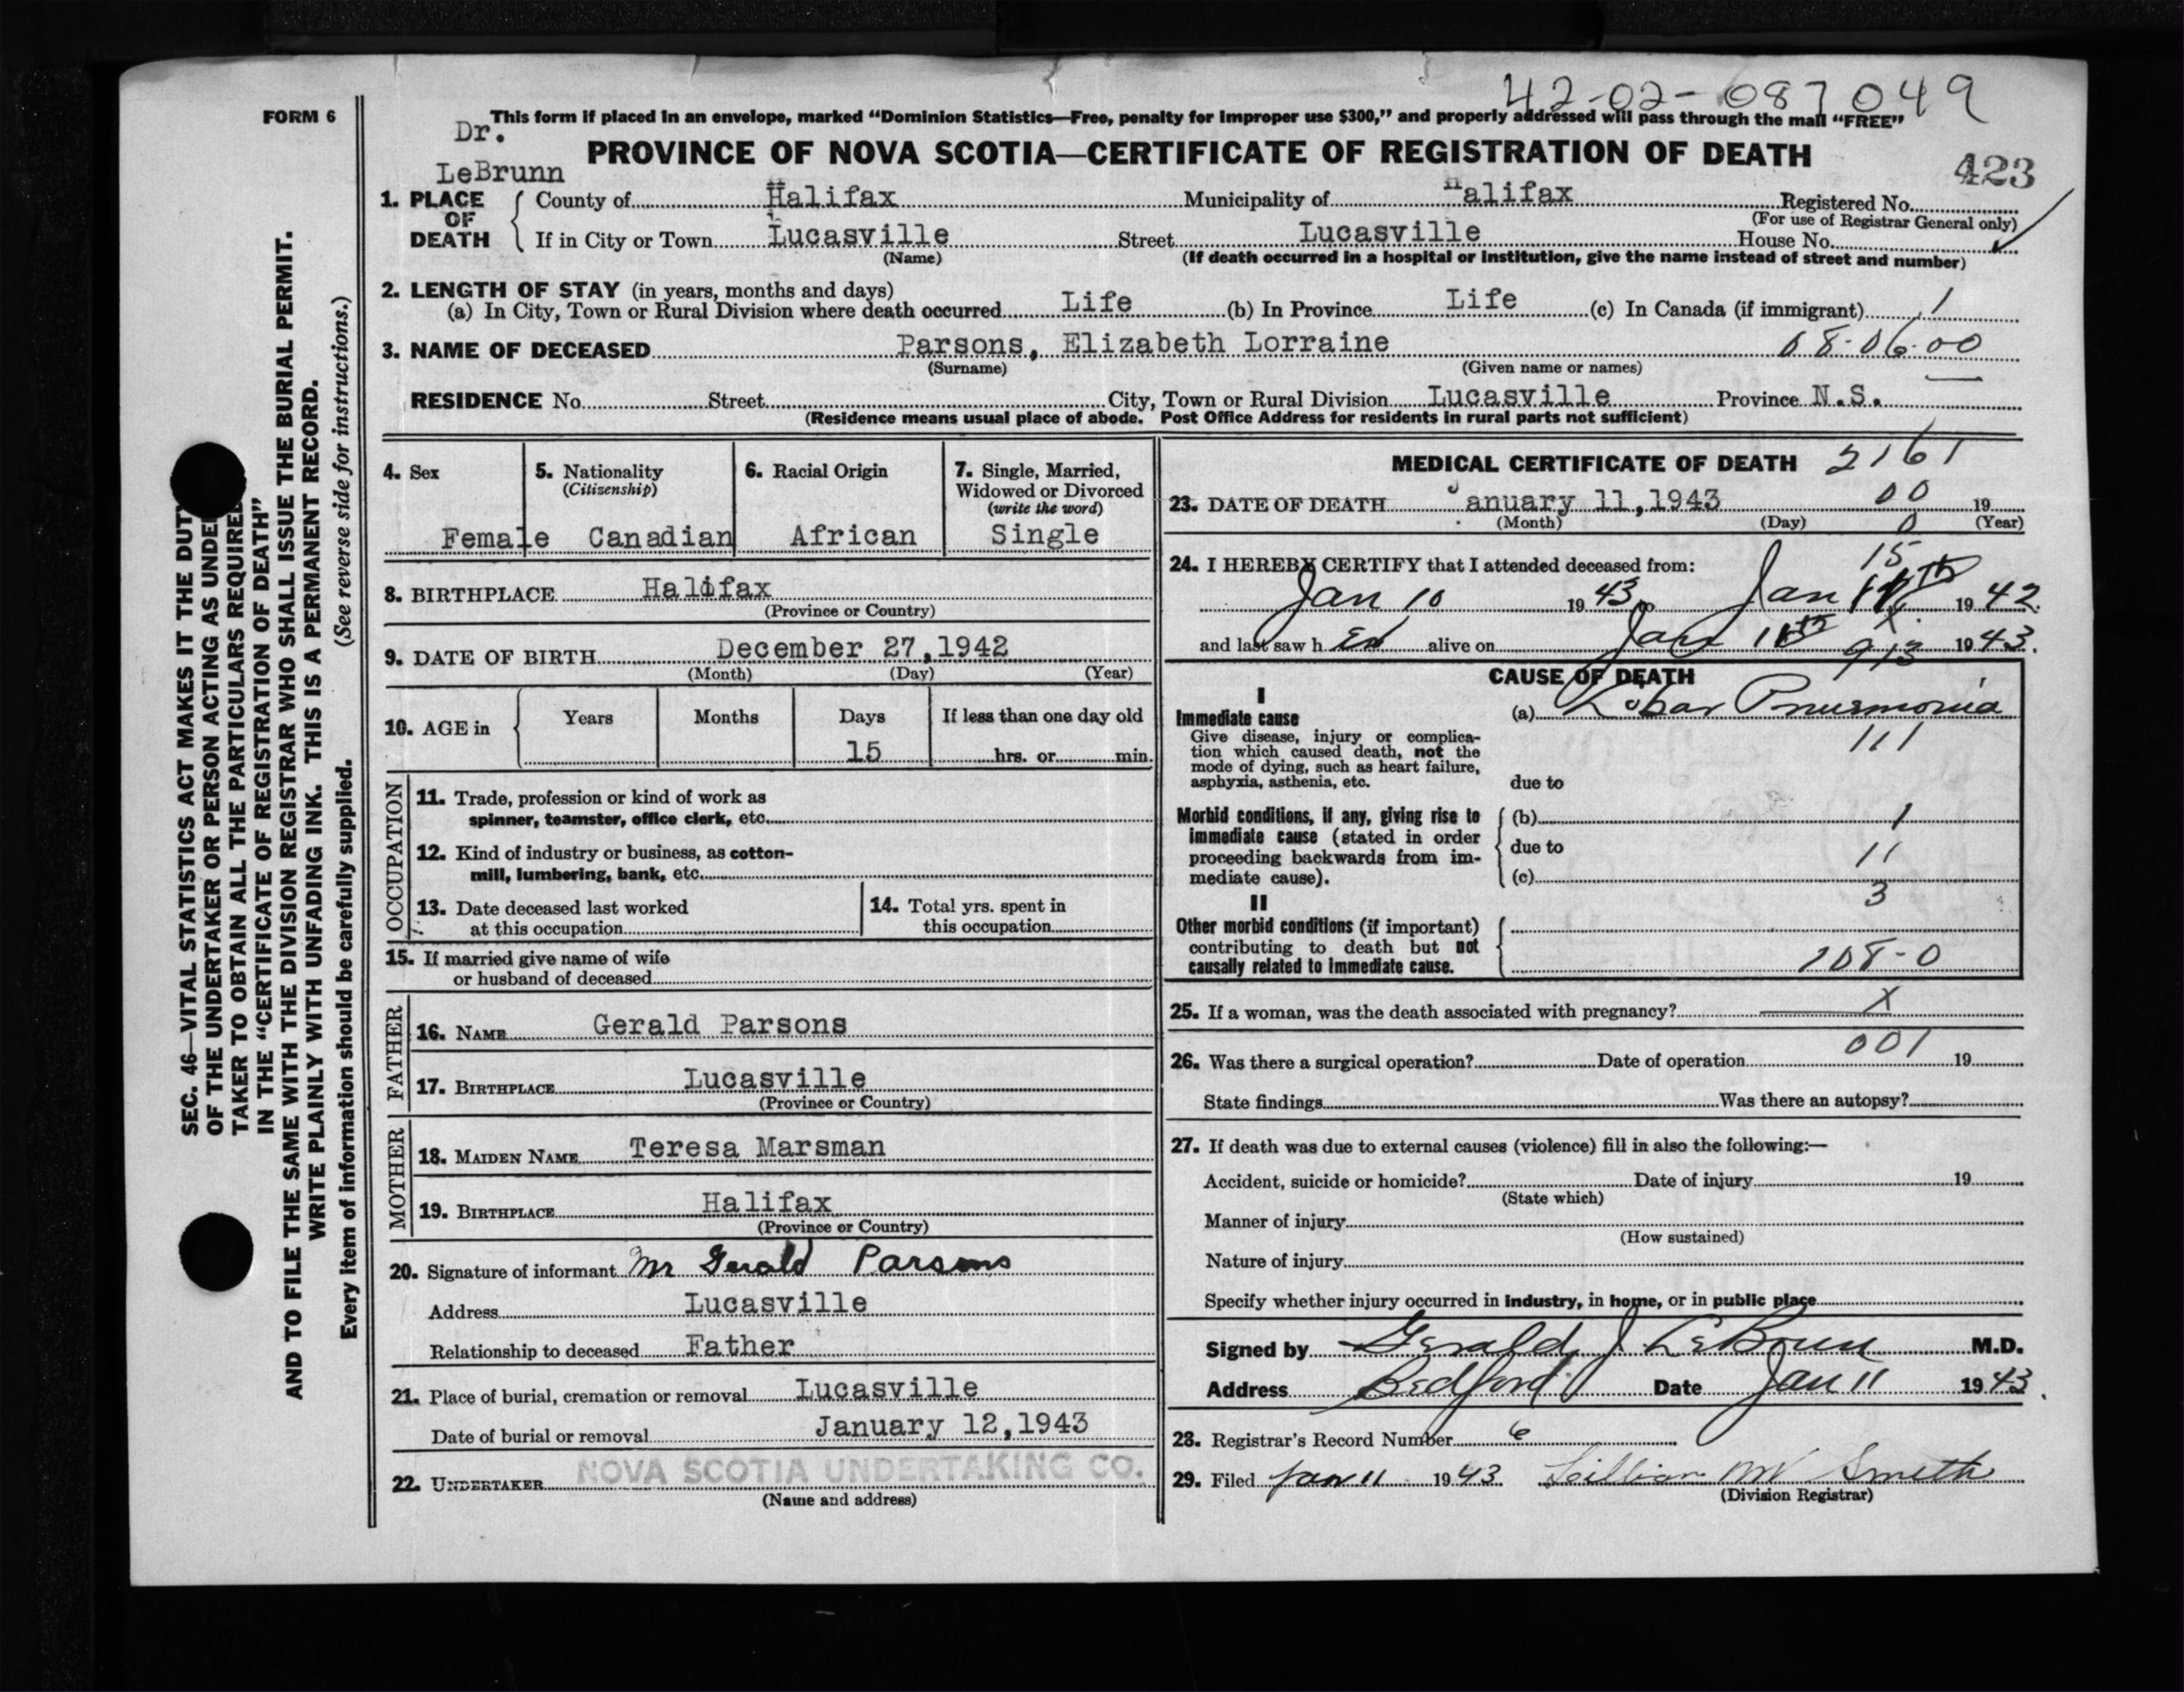 42-02-087049
FORM 6
This form if placed in an envelope, marked “Dominion Statistics—Free, penalty for improper use $300,” and properly addressed will pass through the mail “FREE”
Dr.
LeBrunn
PROVINCE OF NOVA SCOTIA—CERTIFICATE OF REGISTRATION OF DEATH
423
1. PLACE OF DEATH
County of Halifax Municipality of Halifax Registered No.
(For use of Registrar General only)
If in City or Town Lucasville Street Lucasville House No.
(Name) (If death occurred in a hospital or institution, give the name instead of street and number)
2. LENGTH OF STAY (in years, months and days)
(a) In City, Town or Rural Division where death occurred Life (b) In Province Life (c) In Canada (if immigrant) 1
3. NAME OF DECEASED Parsons, Elizabeth Lorraine 08-06-00
(Surname) (Given name or names)
RESIDENCE No. Street City, Town or Rural Division Lucasville Province N.S.
(Residence means usual place of abode. Post Office Address for residents in rural parts not sufficient)
4. Sex
Female
5. Nationality
(Citizenship)
Canadian
6. Racial Origin
African
7. Single, Married,
Widowed or Divorced
(write the word)
Single
8. BIRTHPLACE Halifax
(Province or Country)
9. DATE OF BIRTH December 27,1942
(Month) (Day) (Year)
10. AGE in
Years Months Days If less than one day old
15 hrs. or min.
OCCUPATION
11. Trade, profession or kind of work as
spinner, teamster, office clerk, etc.
12. Kind of industry or business, as cotton-
mill, lumbering, bank, etc.
13. Date deceased last worked
at this occupation
14. Total yrs. spent in
this occupation
15. If married give name of wife
or husband of deceased
FATHER
16. NAME Gerald Parsons
17. BIRTHPLACE Lucasville
(Province or Country)
MOTHER
18. MAIDEN NAME Teresa Marsman
19. BIRTHPLACE Halifax
(Province or Country)
20. Signature of informant Mr Gerald Parsons
Address Lucasville
Relationship to deceased Father
21. Place of burial, cremation or removal Lucasville
Date of burial or removal January 12,1943
22. UNDERTAKER NOVA SCOTIA UNDERTAKING CO.
(Name and address)
MEDICAL CERTIFICATE OF DEATH 2161
23. DATE OF DEATH January 11,1943 00 19
(Month) (Day) 0 (Year)
24. I HEREBY CERTIFY that I attended deceased from:
15
Jan 10 1943 to Jan 11th 1942
and last saw h er alive on Jan 11th 1943.
913
CAUSE OF DEATH
I
Immediate cause
Give disease, injury or complica-
tion which caused death, not the
mode of dying, such as heart failure,
asphyxia, asthenia, etc.
(a) Lobar Pneumonia
111
due to
Morbid conditions, if any, giving rise to
immediate cause (stated in order
proceeding backwards from im-
mediate cause).
(b) 1
due to 11
(c)
3
II
Other morbid conditions (if important)
contributing to death but not
causally related to immediate cause.
108-0
25. If a woman, was the death associated with pregnancy? X
001
26. Was there a surgical operation? Date of operation 19
State findings Was there an autopsy?
27. If death was due to external causes (violence) fill in also the following:—
Accident, suicide or homicide? Date of injury 19
(State which)
Manner of injury
(How sustained)
Nature of injury
Specify whether injury occurred in industry, in home, or in public place
Signed by Gerald J LeBrun M.D.
Address Bedford Date Jan 11 1943.
28. Registrar's Record Number 6
29. Filed Jan 11 1943 Lillian M Smith
(Division Registrar)
SEC. 46—VITAL STATISTICS ACT MAKES IT THE DUTY
OF THE UNDERTAKER OR PERSON ACTING AS UNDER
TAKER TO OBTAIN ALL THE PARTICULARS REQUIRED
IN THE “CERTIFICATE OF REGISTRATION OF DEATH”
AND TO FILE THE SAME WITH THE DIVISION REGISTRAR WHO SHALL ISSUE THE BURIAL PERMIT.
WRITE PLAINLY WITH UNFADING INK. THIS IS A PERMANENT RECORD.
Every item of information should be carefully supplied. (See reverse side for instructions.)